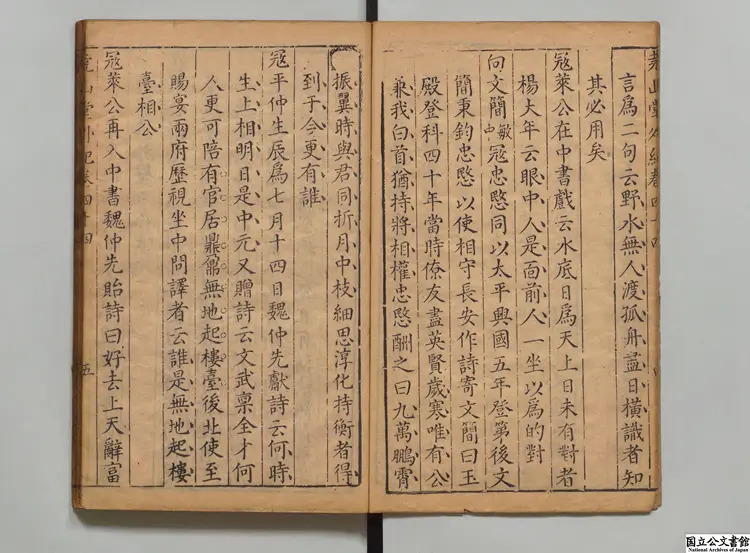 言爲二句云野水無人渡孤舟盡日橫識者知
其必用矣
寇萊公在中書戲云水底日爲天上日未有對者
楊大年云眼中人是面前人一坐以爲的對
向文簡敏中寇忠愍同以太平興國五年登第後文
簡秉鈞忠愍以使相守長安作詩寄文簡曰玉
殿登科四十年當時僚友盡英賢歲寒唯有公
兼我白首猶持將相權忠愍酬之曰九萬鵬霄
振翼時與君同折月中枝細思淳化持衡者得
到于今更有誰
寇平仲生辰爲七月十四日魏仲先獻詩云何時
生上相明日是中元又贈詩云文武禀全才何
人更可陪有官居鼎鼐無地起樓臺後北使至
賜宴兩府歷視坐中問譯者云誰是無地起樓
臺相公
寇萊公再入中書魏仲先貽詩曰好去上天辭富
堯山堂外紀卷四十四
五
国立公文書館
National Archives of Japan